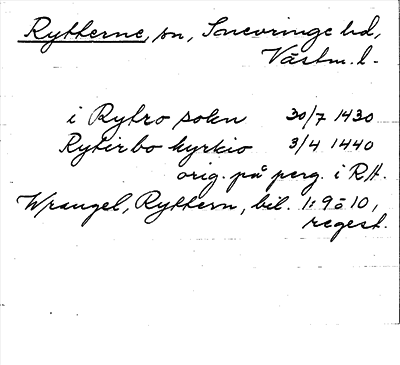 Rytterne, sn, Snevringe hd,
Västm. l.
i Rytro sokn 30/7 1430
Ryterbo kyrkio 3/4 1440
orig. på perg. i RA.
Wrangel, Ryttern, bil. 1:9 o 10,
regest.